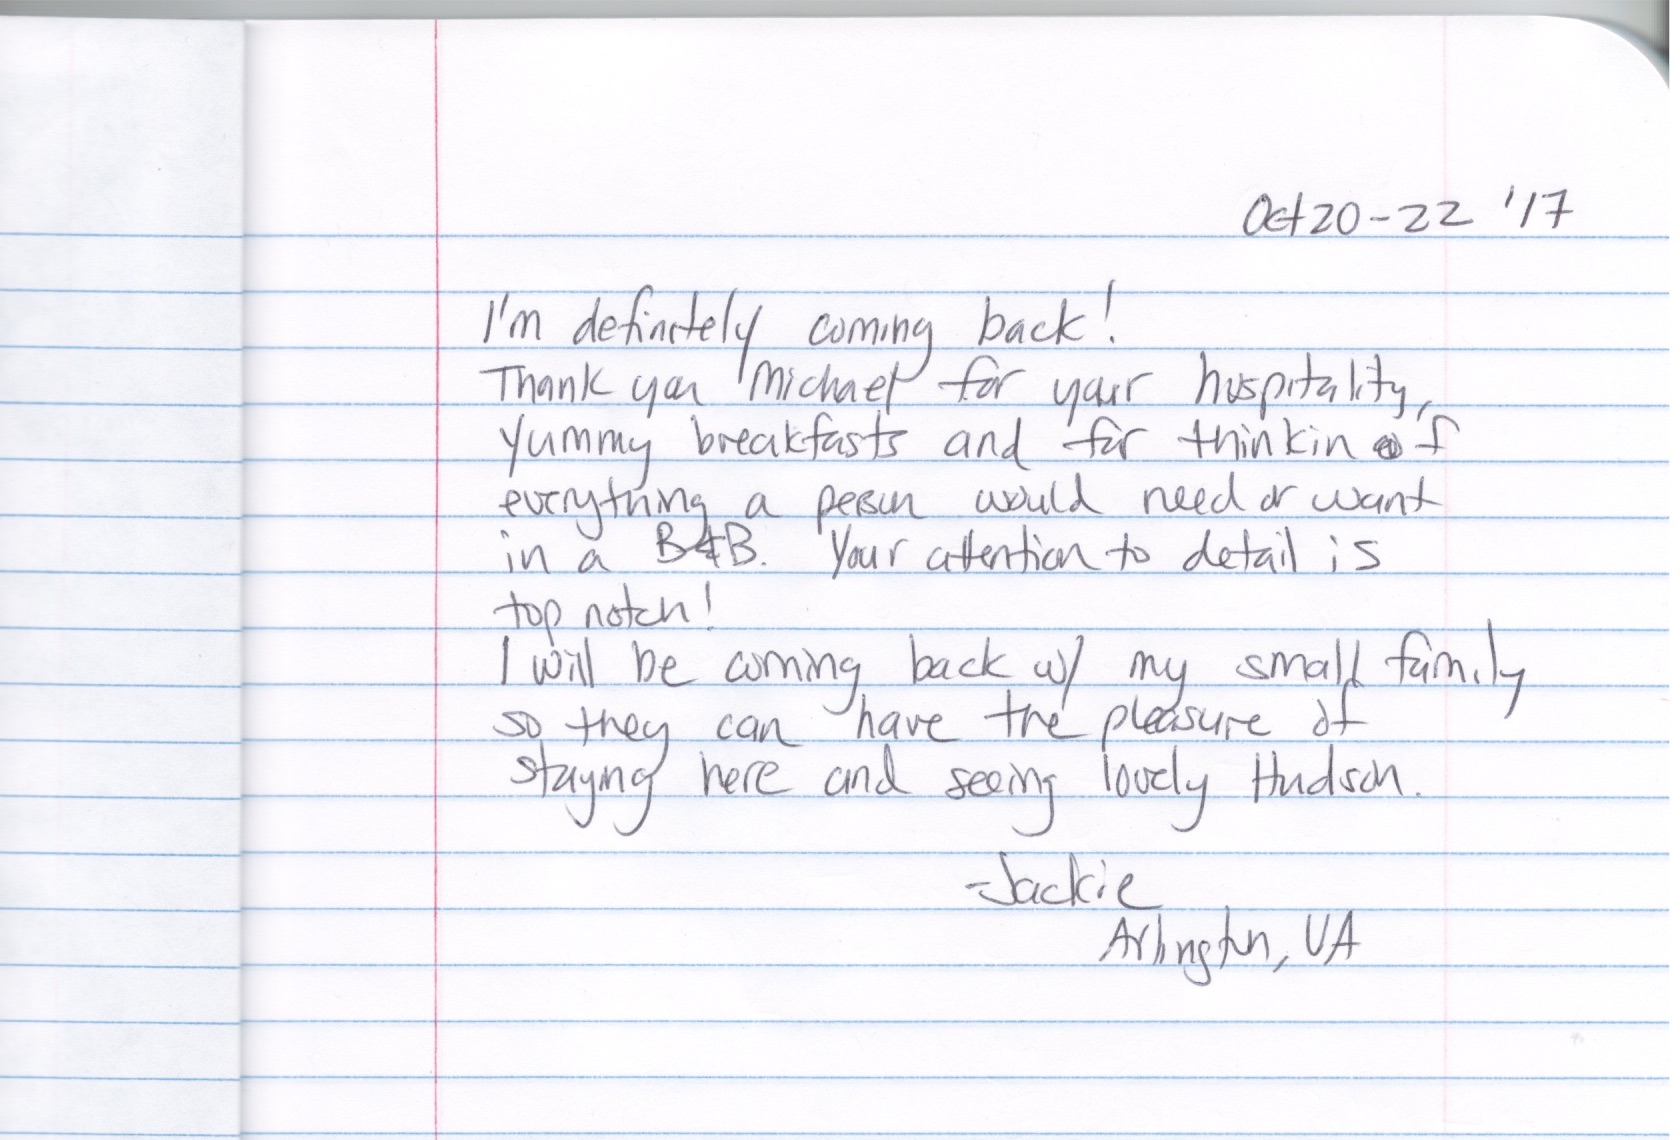 Oct 20-22 '17
I'm definitely coming back!
Thank you Michael for your hospitality,
yummy breakfasts and for thinkin of
everything a person would need or want
in a B&B. Your attention to detail is
top notch!
I will be coming back w/ my small family
so they can have the pleasure of
staying here and seeing lovely Hudson.
-Jackie
Arlington, VA